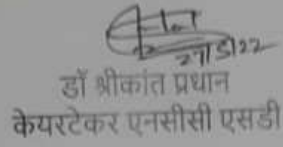 डॉ श्रीकांत प्रधान
केयरटेकर एनसीसी एसडी